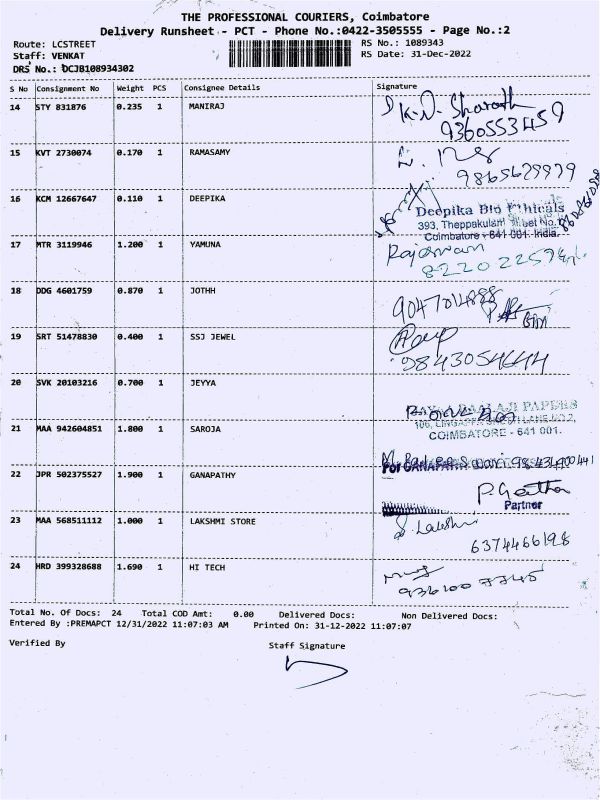 THE PROFESSIONAL COURIERS, Coimbatore
Delivery Runsheet - PCT - Phone No.:0422-3505555 - Page No.:2
Route: LCSTREET
RS No.: 1089343
Staff: VENKAT
RS Date: 31-Dec-2022
DRS No.: DCJB108934302
S No Consignment No Weight PCS Consignee Details Signature
14 STY 831876 0.235 1 MANIRAJ K.N. Sharath
9360553459
15 KVT 2730074 0.170 1 RAMASAMY
9865679979
16 KCM 12667647 0.110 1 DEEPIKA
Deepika Bio Ethicals
393, Theppakulam Street No.
Coimbatore - 641 001. India.
17 MTR 3119946 1.200 1 YAMUNA
18 DDG 4601759 0.870 1 JOTHH 9047014888
19 SRT 51478830 0.400 1 SSJ JEWEL
9843054644
20 SVK 20103216 0.700 1 JEYYA
PAPERS
21 MAA 942604851 1.800 1 SAROJA
COIMBATORE - 641 001.
22 JPR 502375527 1.900 1 GANAPATHY
For GANAPATHY
P. Geetha
Partner
23 MAA 568511112 1.000 1 LAKSHMI STORE S. Lakshmi
6374466198
24 HRD 399328688 1.690 1 HI TECH
Total No. Of Docs: 24 Total COD Amt: 0.00 Delivered Docs: Non Delivered Docs:
Entered By :PREMAPCT 12/31/2022 11:07:03 AM Printed On: 31-12-2022 11:07:07
Verified By
Staff Signature